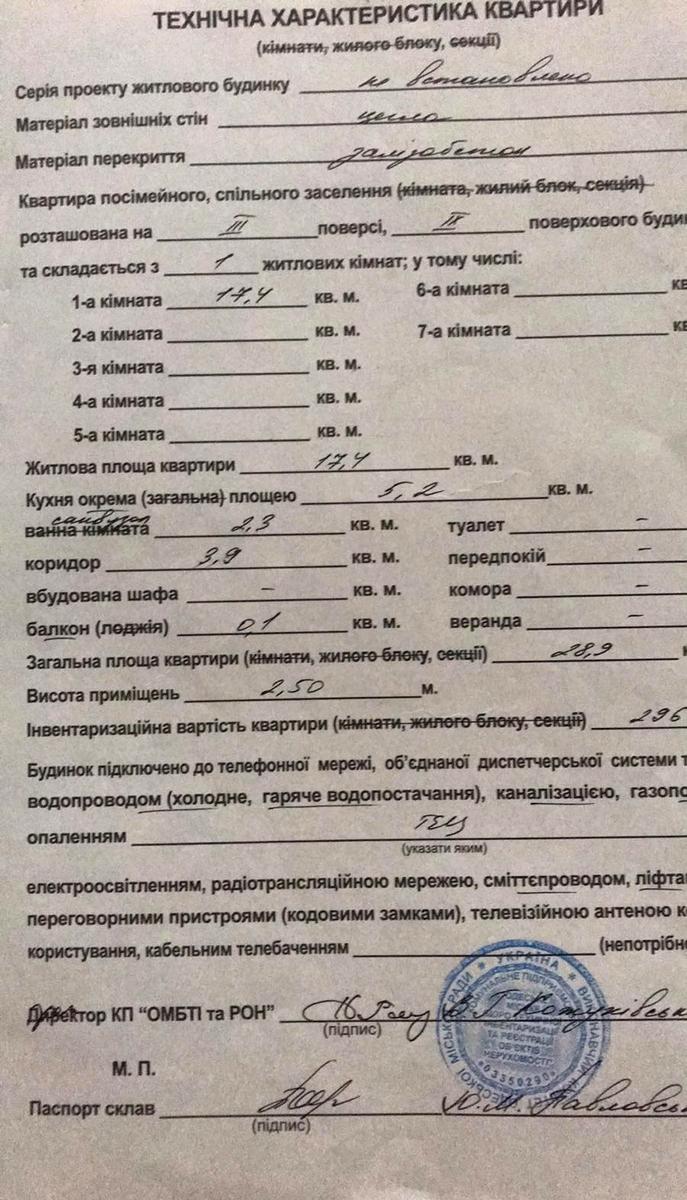 ТЕХНІЧНА ХАРАКТЕРИСТИКА КВАРТИРИ
(кімнати, жилого блоку, секції)
Серія проекту житлового будинку не встановлено
Матеріал зовнішніх стін цегла
Матеріал перекриття залізобетон
Квартира посімейного, спільного заселення (кімната, жилий блок, секція)
розташована на III поверсі, IX поверхового буди
та складається з 1 житлових кімнат; у тому числі:
1-а кімната 17,4 кв. м. 6-а кімната кв
2-а кімната кв. м. 7-а кімната кв
3-я кімната кв. м.
4-а кімната кв. м.
5-а кімната кв. м.
Житлова площа квартири 17,4 кв. м.
Кухня окрема (загальна) площею 5,2 кв. м.
санвузол
ванна кімната 2,3 кв. м. туалет –
коридор 3,9 кв. м. передпокій –
вбудована шафа – кв. м. комора –
балкон (лоджія) 0,1 кв. м. веранда –
Загальна площа квартири (кімнати, жилого блоку, секції) 28,9
Висота приміщень 2,50 м.
Інвентаризаційна вартість квартири (кімнати, жилого блоку, секції) 296
Будинок підключено до телефонної мережі, об’єднаної диспетчерської системи т
водопроводом (холодне, гаряче водопостачання), каналізацією, газопо
опаленням ТЕЦ
(указати яким)
електроосвітленням, радіотрансляційною мережею, сміттєпроводом, ліфта
переговорними пристроями (кодовими замками), телевізійною антеною к
користування, кабельним телебаченням (непотрібн
Директор КП “ОМБТІ та РОН”
(підпис)
УКРАЇНА
ІНВЕНТАРИЗАЦІЇ
ТА РЕЄСТРАЦІЇ
ОБ'ЄКТІВ
НЕРУХОМОСТІ
03350290
М. П.
Паспорт склав Ю.М. Павловсь
(підпис)